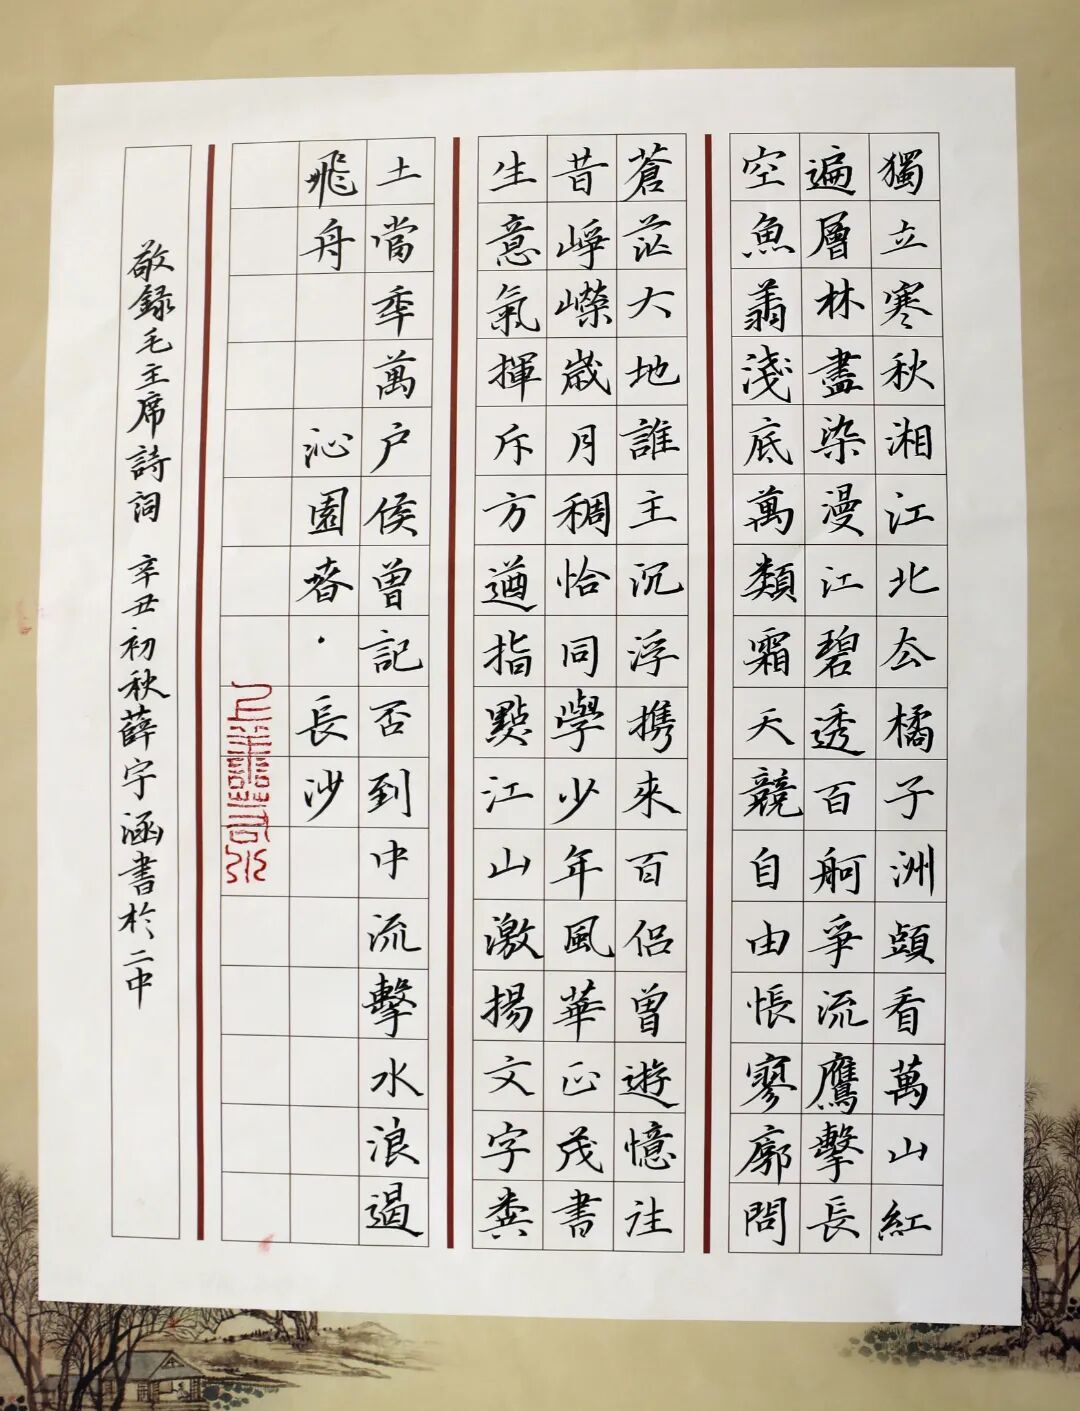 獨立寒秋湘江北去橘子洲頭看萬山紅
遍層林盡染漫江碧透百舸爭流鷹擊長
空魚翔淺底萬類霜天競自由悵寥廓問
蒼茫大地誰主沉浮携來百侣曾遊憶往
昔崢嶸歲月稠恰同學少年風華正茂書
生意氣揮斥方遒指點江山激揚文字糞
土當年萬户侯曾記否到中流擊水浪遏
飛舟 沁園春·長沙
敬録毛主席詩詞 辛丑初秋薛宇涵書於二中